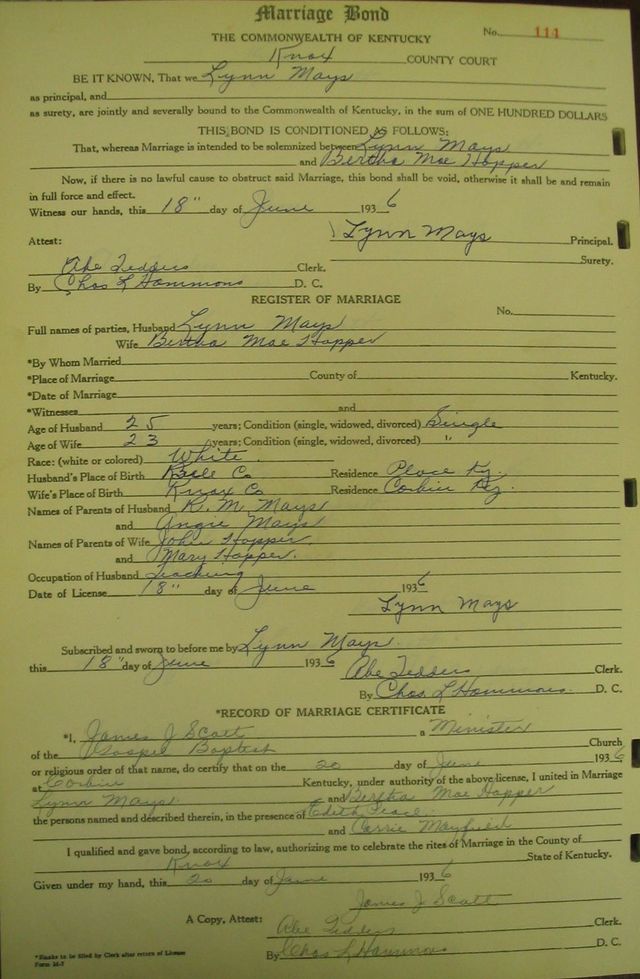 Marriage Bond
No. 111
THE COMMONWEALTH OF KENTUCKY
Knox COUNTY COURT
BE IT KNOWN, That we Lynn Mays
as principal, and
as surety, are jointly and severally bound to the Commonwealth of Kentucky, in the sum of ONE HUNDRED DOLLARS
THIS BOND IS CONDITIONED AS FOLLOWS:
That, whereas Marriage is intended to be solemnized between Lynn Mays
and Bertha Mae Hopper
Now, if there is no lawful cause to obstruct said Marriage, this bond shall be void, otherwise it shall be and remain
in full force and effect.
Witness our hands, this 18" day of June 1936
Lynn Mays Principal.
Attest: Surety.
Abe Tedders Clerk.
By Chas L Hammons D. C.
REGISTER OF MARRIAGE
No.
Full names of parties, Husband Lynn Mays
Wife Bertha Mae Hopper
*By Whom Married
*Place of Marriage County of Kentucky.
*Date of Marriage
*Witnesses and
Age of Husband 25 years; Condition (single, widowed, divorced) Single
Age of Wife 23 years; Condition (single, widowed, divorced) "
Race: (white or colored) White
Husband's Place of Birth Co Residence Place Ky.
Wife's Place of Birth Knox Co Residence Corbin Ky.
Names of Parents of Husband R. M. Mays
and Angie Mays
Names of Parents of Wife John Hopper
and Mary Hopper.
Occupation of Husband Teaching
Date of License 18" day of June 1936
Lynn Mays
Subscribed and sworn to before me by Lynn Mays.
this 18" day of June 1936 Abe Tedders Clerk.
By Chas L Hammons D. C.
*RECORD OF MARRIAGE CERTIFICATE
*I, James J Scott a Minister
of the Gospel Baptist Church
or religious order of that name, do certify that on the 20 day of June 1936
at Corbin Kentucky, under authority of the above license, I united in Marriage
Lynn Mays. and Bertha Mae Hopper
the persons named and described therein, in the presence of Edith
and Carrie Mayfield
I qualified and gave bond, according to law, authorizing me to celebrate the rites of Marriage in the County of
Knox State of Kentucky.
Given under my hand, this 20 day of June 1936
James J Scott
A Copy, Attest: Abe Tedders Clerk.
By Chas L Hammons D. C.
*Blanks to be filled by Clerk after return of License